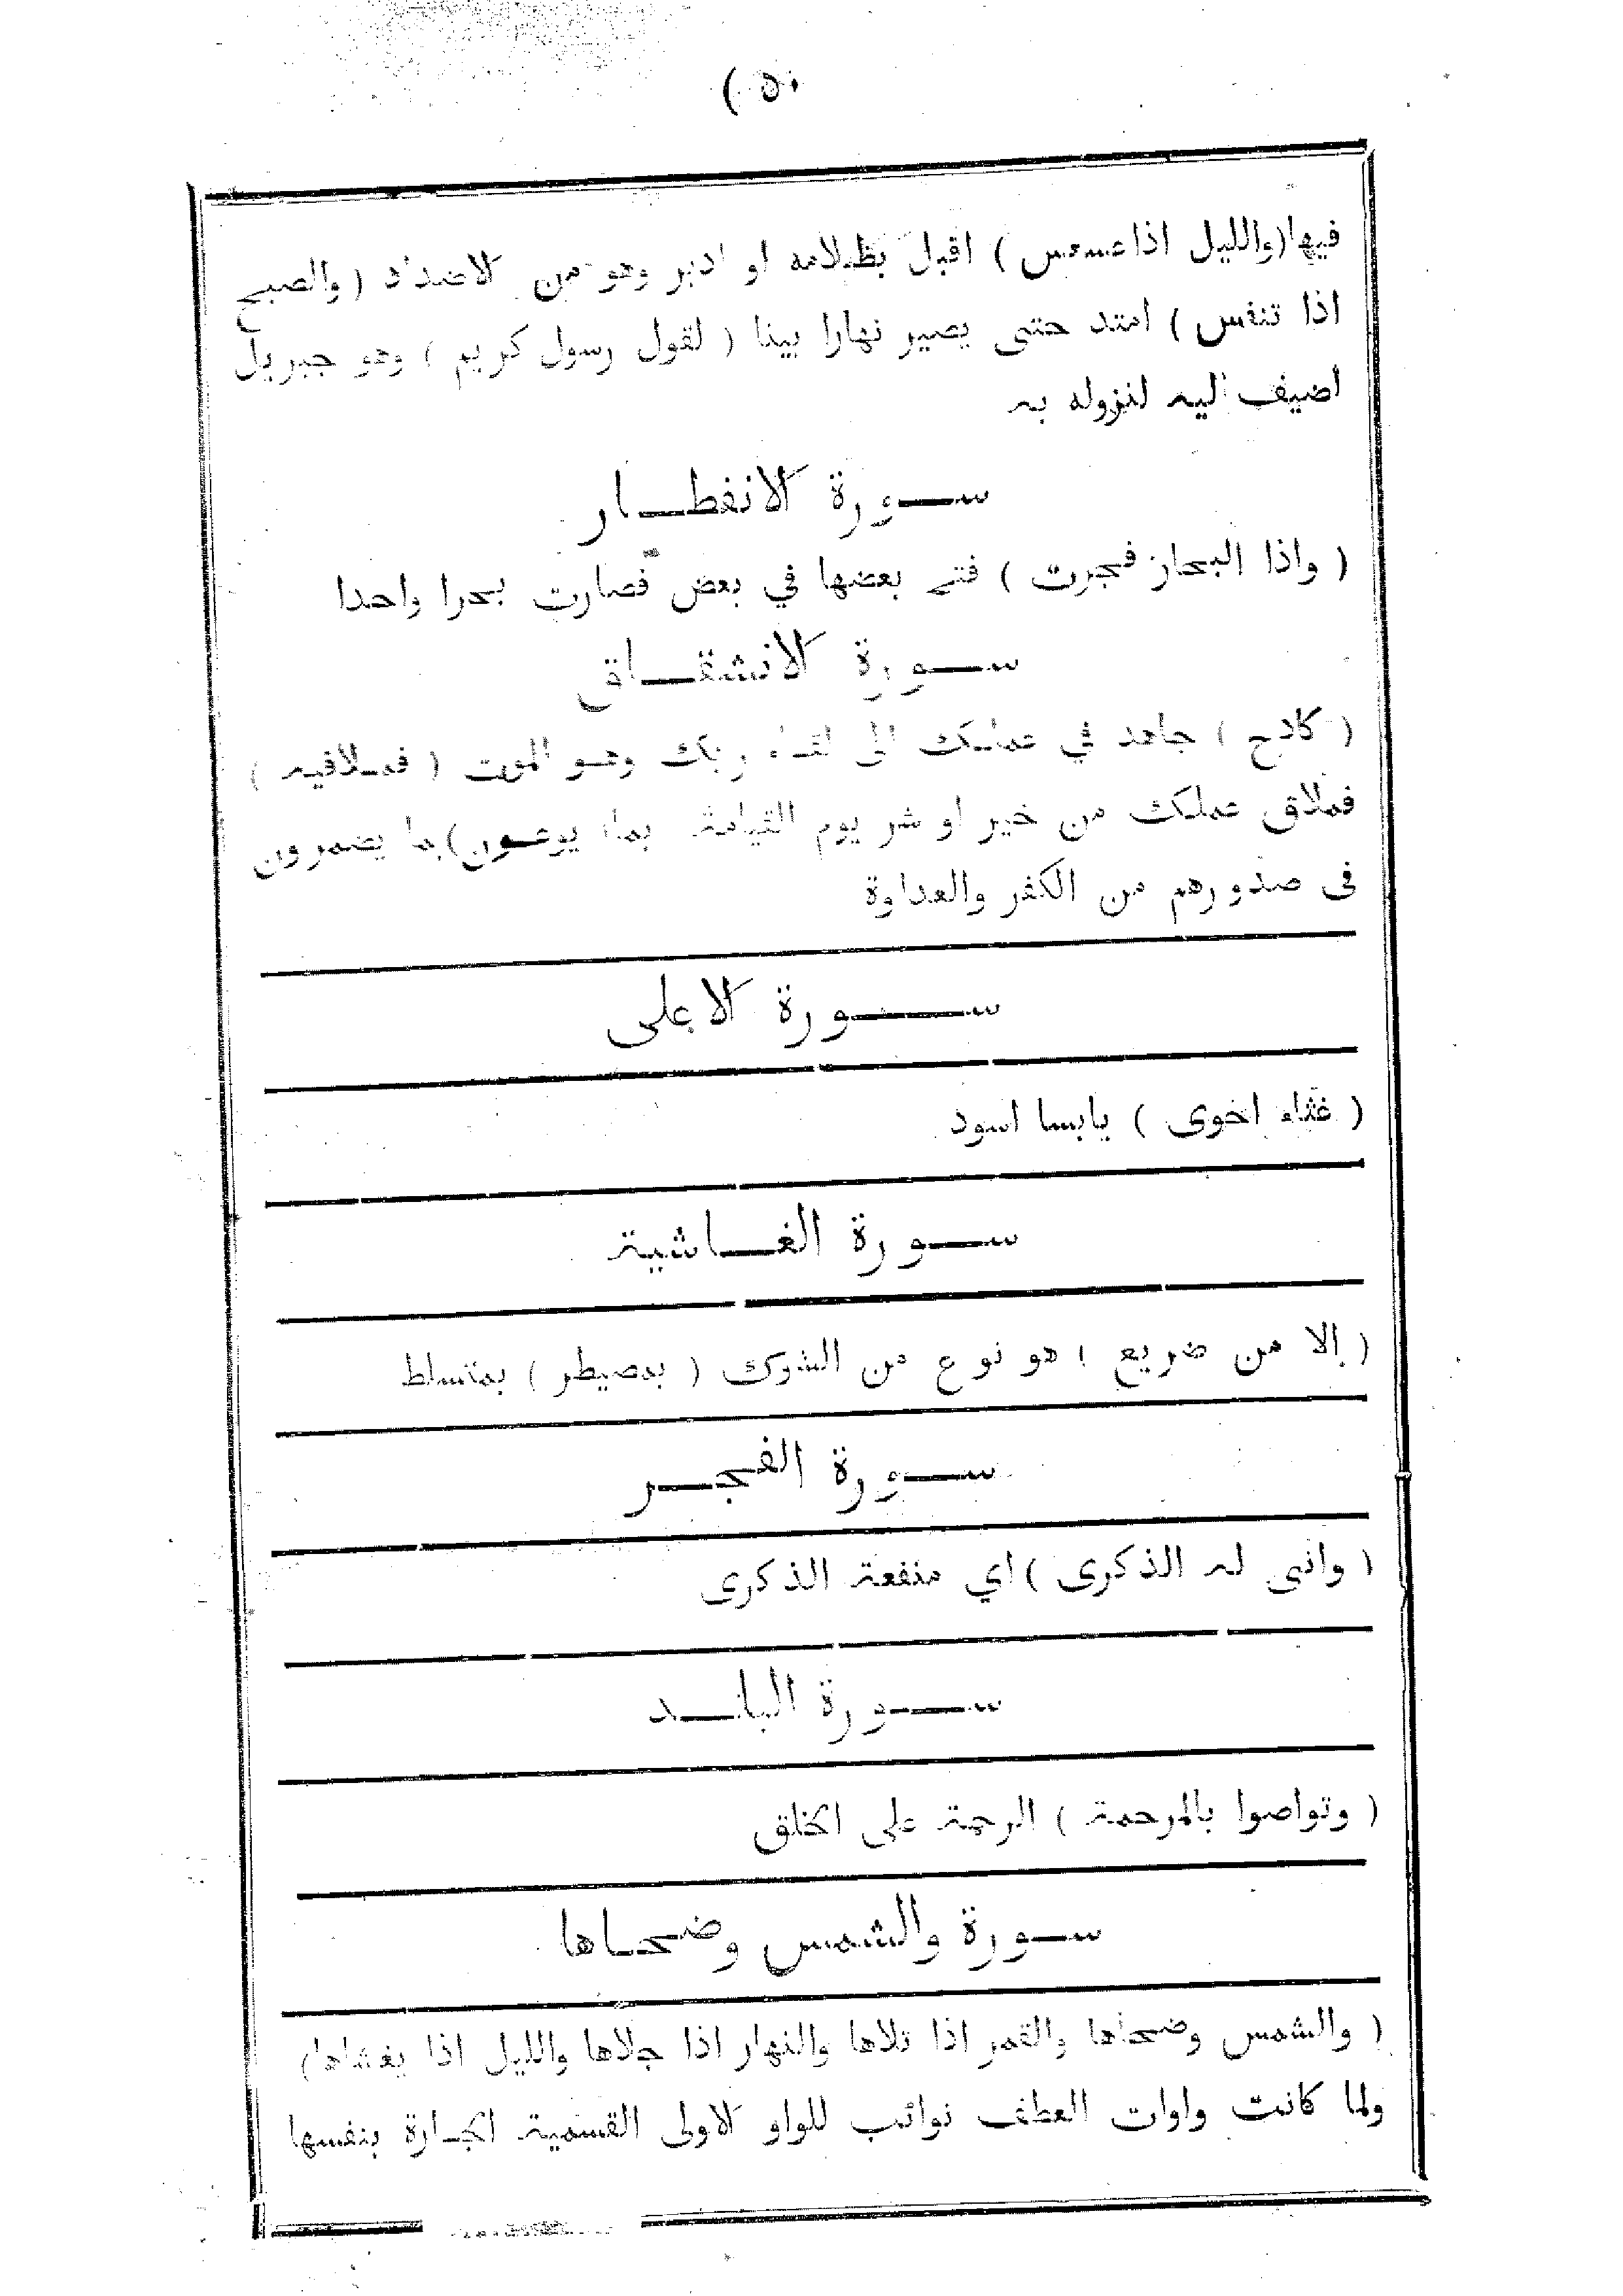 ٥٠ )
فيها (والليل اذا عسعس ) اقبل بظلامه او ادبر وهو من الاضداد ( والصبح
اذا تنفس ) امتد حتى يصير نهارا بينا ( لقول رسول كريم ) وهو جبريل
اضيف اليه لنزوله به
سورة الانفطار
( واذا البحار فجرت ) فتح بعضها في بعض فصارت بحرا واحدا
سورة الانشقاق
( كادح ) جاهد في عملك الى لقاء ربك وهو الموت ( فملاقيه )
فملاق عملك من خير او شر يوم القيامة بما يوعون) بما يضمرون
فى صدورهم من الكفر والعداوة
سورة الاعلى
( غثاء احوى ) يابسا اسود
سورة الغاشية
( إلا من ضريع ) هو نوع من الشوك ( بمصيطر ) بمتسلط
سورة الفجر
( وانى له الذكرى ) اي منفعة الذكرى
سورة البلد
( وتواصوا بالمرحمة ) الرحمة على الخلق
سورة والشمس وضحاها
( والشمس وضحاها والقمر اذا تلاها والنهار اذا جلاها والليل اذا يغشاها)
ولما كانت واوات العطف نوائب للواو الاولى القسمية الجارة بنفسها